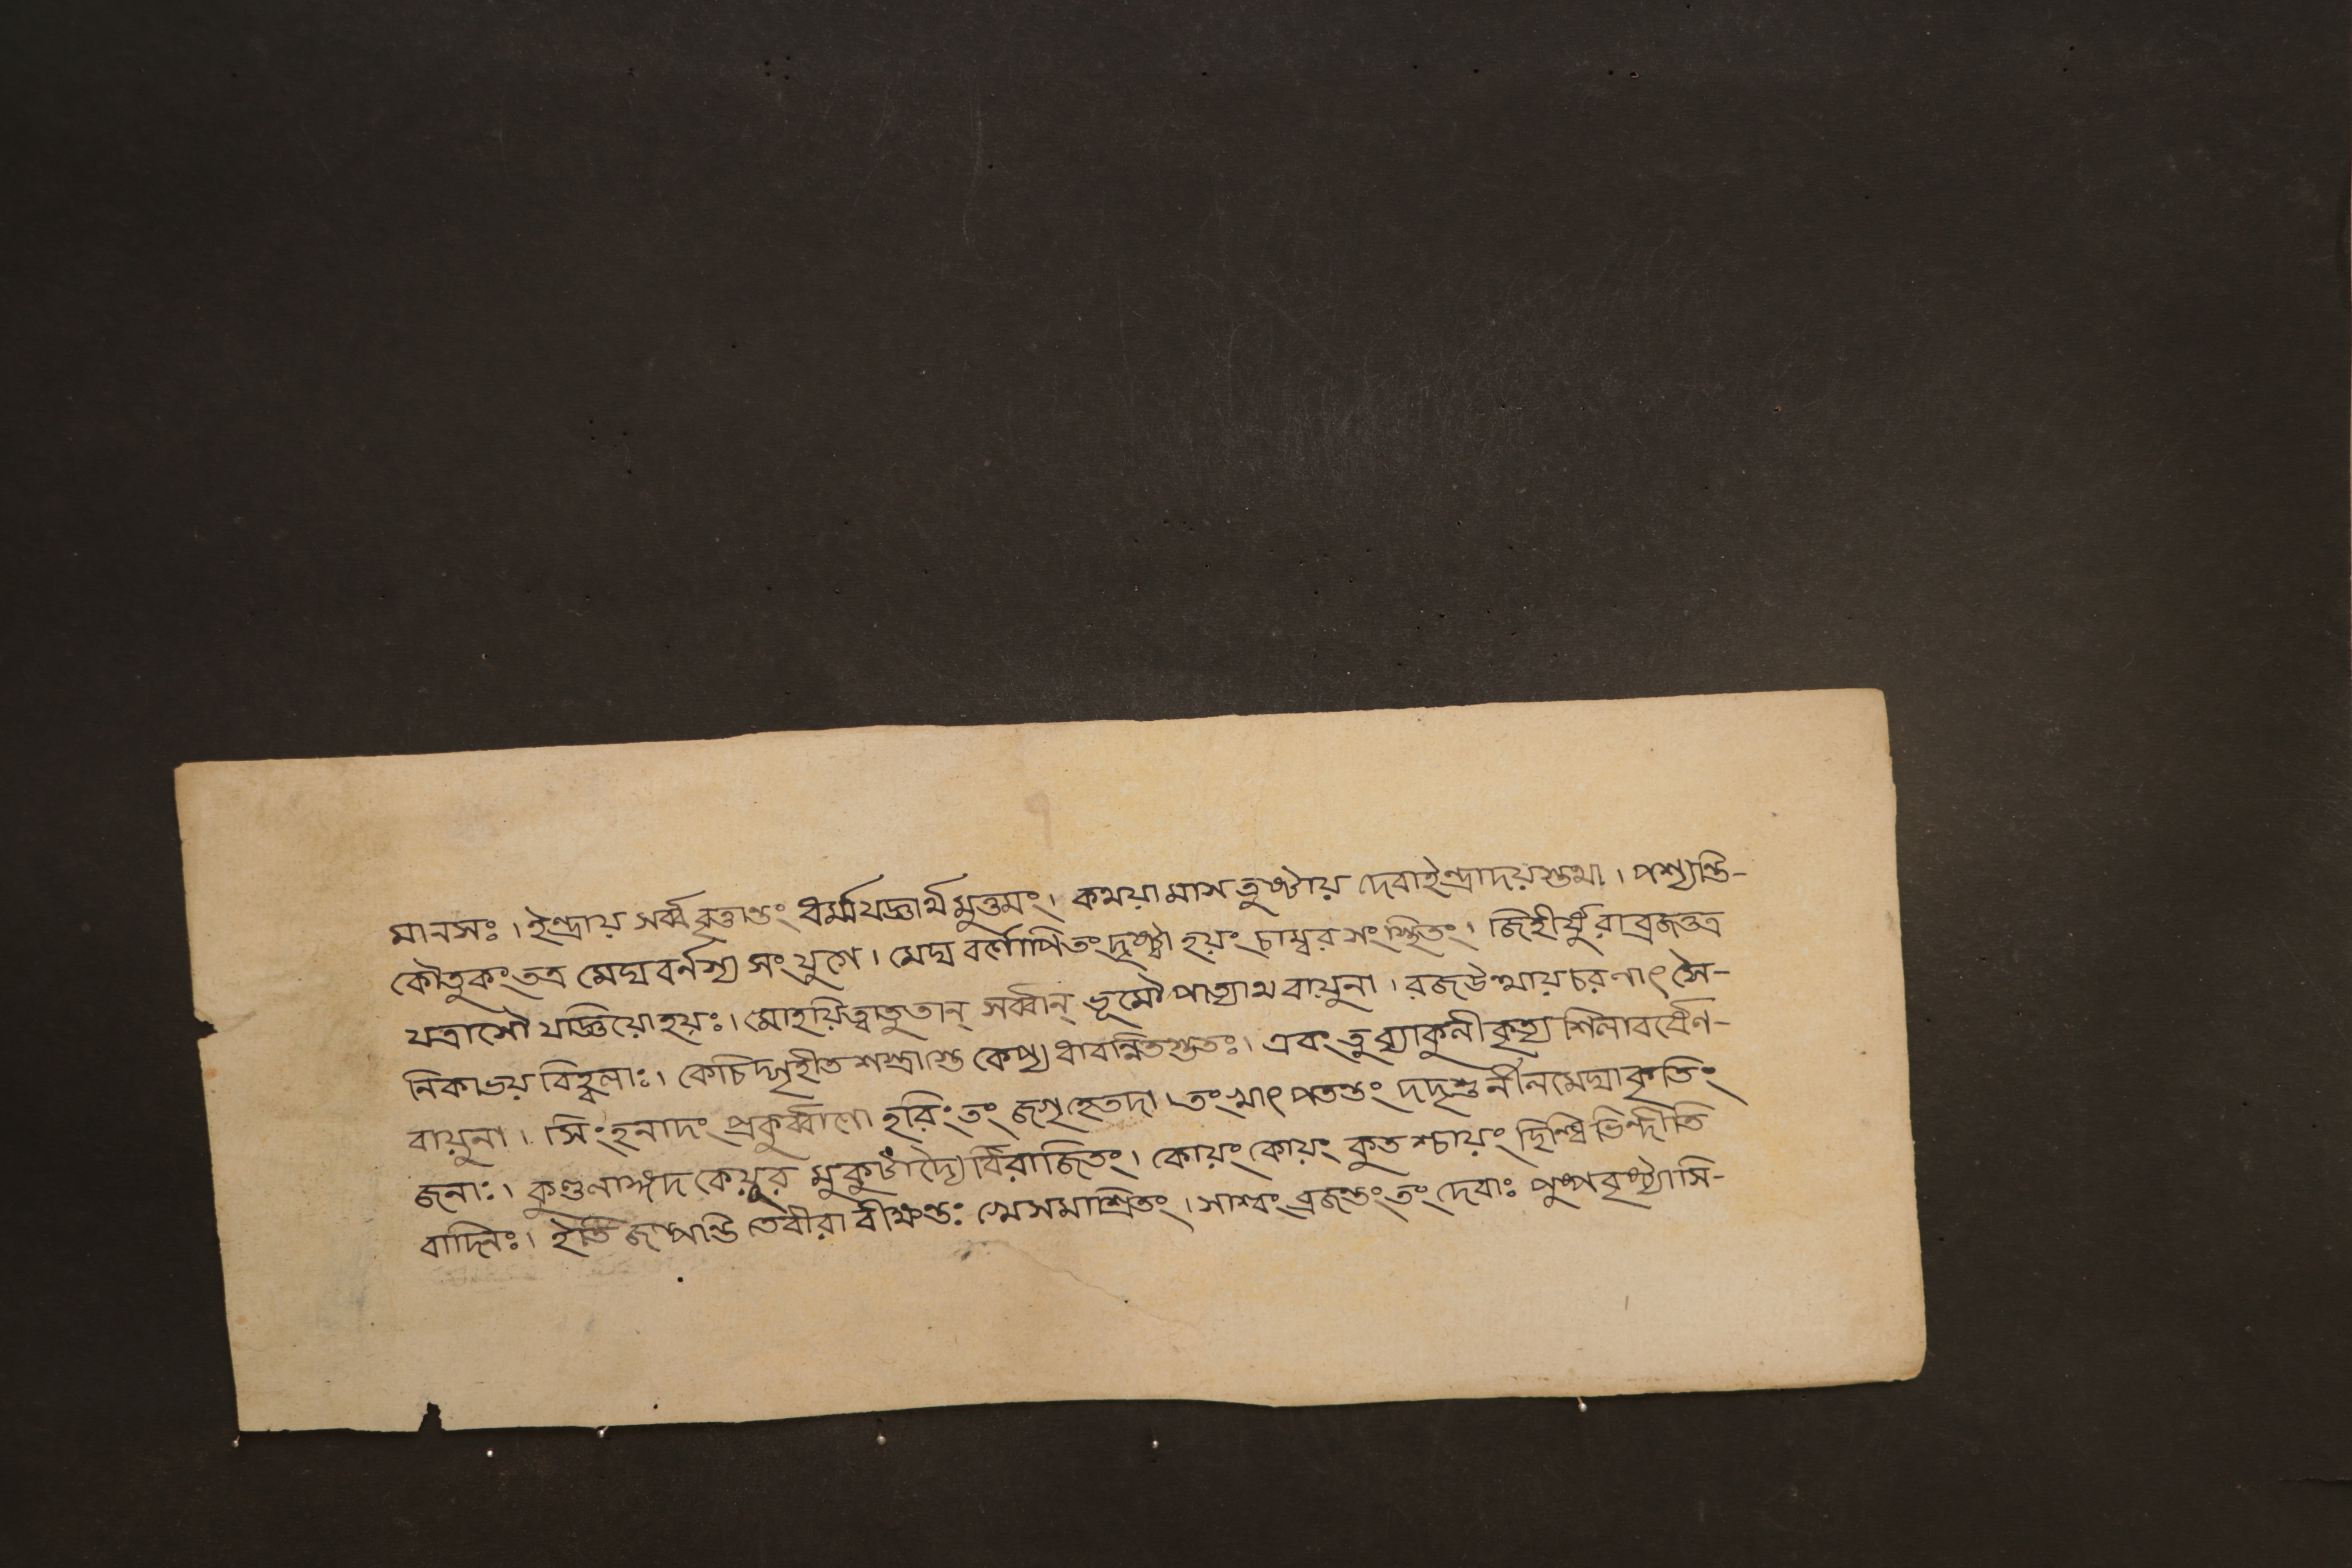 মানসঃ। ইন্দ্রায় সর্ব্ববৃত্তান্তং ধর্ম্মযজ্ঞার্থমুত্তমং। কথয়ামাস তুষ্টায় দেবাইন্দ্রাদয়স্তথা। পশ্যন্তি-
কৌতুকং তত্র মেঘবর্নস্য সংযুগে। মেঘবর্ণোপিতং দৃষ্ট্বা হয়ং চাম্বরসংস্থিতং। জিহীর্ষুরাব্রজত্তত্র
যত্রাসৌ যাজ্ঞিয়োহয়ঃ। মোহয়িত্বাতুতান্ সর্ব্বান্ ভূমৌ পাত্যাথ বায়ুনা। রজউত্থায় চরণাৎ সৈ-
নিকাভয়বিহ্বলাঃ। কেচিদ্গৃহীতশস্ত্রাস্তু কেপ্যধাবন্নিতস্ততঃ। এবং তুব্যাকুলীকৃত্য শিলাবর্ষেণ-
বায়ুনা। সিংহনাদং প্রকুর্ব্বাণো হরিংতং জগৃহেতদা। তংখাৎ পতন্তং দদৃশুর্নীলমেঘাকৃতিং
জনাঃ। কুণ্ডলাঙ্গদকেয়ূর মুকুটাদ্যৈর্বিরাজিতং। কোয়ং কোয়ং কুতশ্চায়ং ছিন্ধি ভিন্দীতি
বাদিনঃ। ইতি জল্পন্তি তেবীরা বীক্ষন্তঃ খেসমাশ্রিতং। সাশ্বং ব্রজন্তং তং দেবাঃ পুষ্পবৃষ্ট্যাসি-